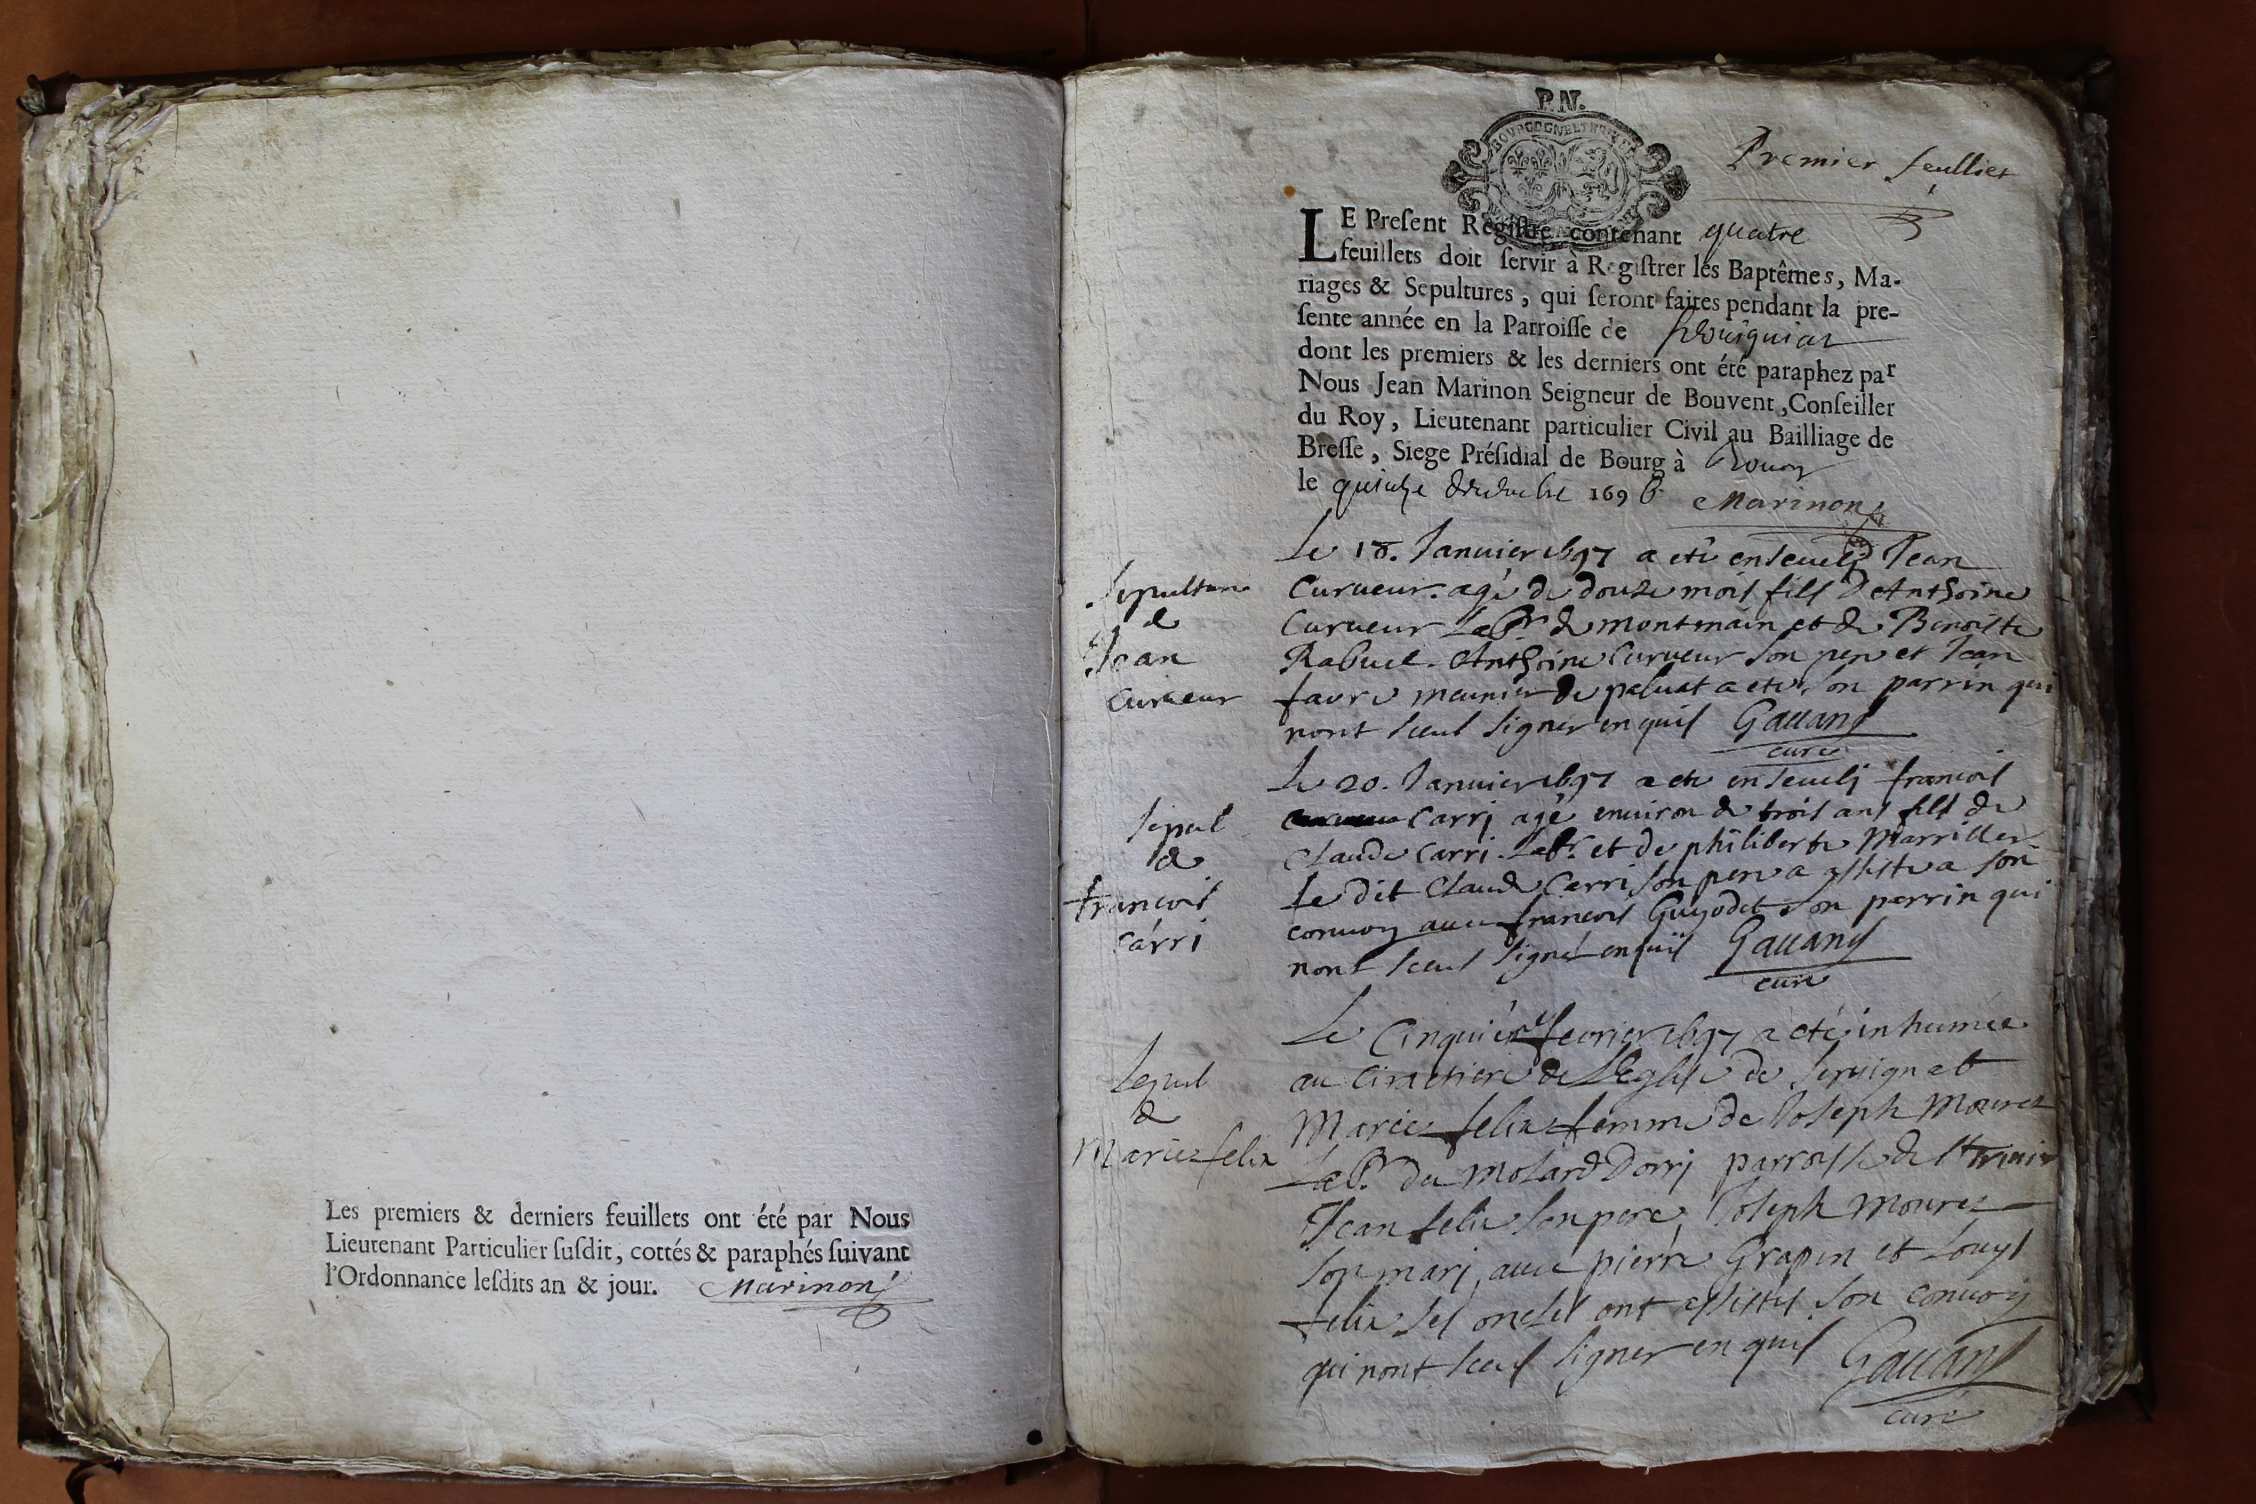 Les premiers & derniers feuillets ont été par Nous
Lieutenant Particulier ſuſdit, cottés & paraphés ſuivant
l'Ordonnance leſdits an & jour. Marinon
P. N.
Premier feulliet
LE Preſent Regiſtre contenant quatre
feuillets doit ſervir à Regiſtrer les Baptêmes, Ma-
riages & Sepultures, qui ſeront faites pendant la pre-
ſente année en la Parroiſſe de
dont les premiers & les derniers ont été paraphez par
Nous Jean Marinon Seigneur de Bouvent, Conſeiller
du Roy, Lieutenant particulier Civil au Bailliage de
Breſſe, Siege Préſidial de Bourg à Bourg
le quinze 1696 Marinon
Sepulture
de
Jean
Curveur
Le 18. Janvier 1697 a eté enseveli Jean
Curveur. agé de douze mois fils d'Anthoine
Curveur Labr de montmain et de Benoiste
Rabuel. Anthoine Curveur son pere et Jean
favre meunier de paluat a ete son parrin qui
nont sceus signer enquis Gauand
curé
Sepul
de
francois
Carri
Le 20. Janvier 1697 a ete enseveli francois
Carri agé environ de trois ans fils de
Claude Carri Labr. et de philiberte Marriller
Le dit Claude Carri son pere a assiste a son
convoy avec francois Guyodet son perrin qui
nont sceus signé enquis Gauand
curé
Sepul
de
Marie felix
Le Cinquiéme fevrier 1697 a eté inhumée
au Cimetiere de L'Eglise de Servignat
Marie felix femme de Joseph Mourez
Labr. du Molard Dorri parroisse de St Trivier
Jean felix son pere, Joseph Mourez
son mari, avec pierre Grapin et Louys
felix ses oncles ont assistés son convoy
qui nont sceus signer enquis Gauand
curé